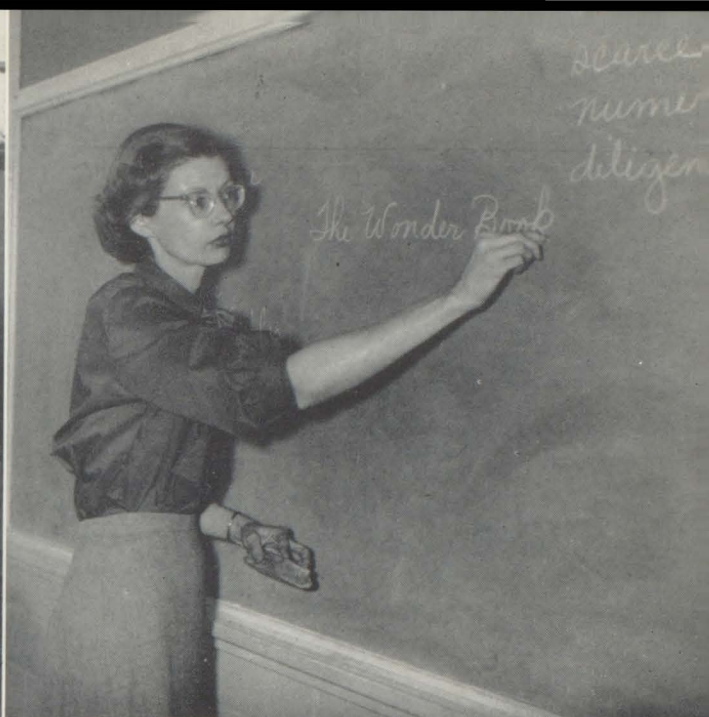 scarce
nume
diligen
The Wonder Book